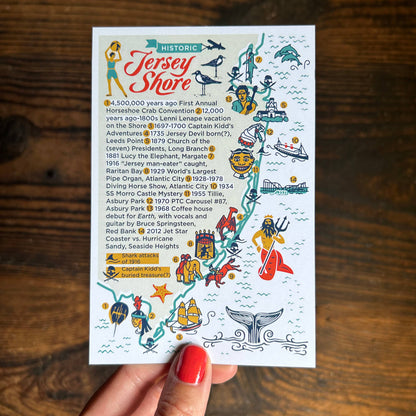 HISTORIC
Jersey
Shore
1 4,500,000 years ago First Annual
Horseshoe Crab Convention 2 12,000
years ago-1800s Lenni Lenape vacation
on the Shore 3 1697-1700 Captain Kidd's
Adventures 4 1735 Jersey Devil born(?),
Leeds Point 5 1879 Church of the
(seven) Presidents, Long Branch 6
1881 Lucy the Elephant, Margate 7
1916 "Jersey man-eater" caught,
Raritan Bay 8 1929 World's Largest
Pipe Organ, Atlantic City 9 1928-1978
Diving Horse Show, Atlantic City 10 1934
SS Morro Castle Mystery 11 1955 Tillie,
Asbury Park 12 1970 PTC Carousel #87,
Asbury Park 13 1968 Coffee house
debut for Earth, with vocals and
guitar by Bruce Springsteen,
Red Bank 14 2012 Jet Star
Coaster vs. Hurricane
Sandy, Seaside Heights
Shark attacks
of 1916
Captain Kidd's
buried treasure(?)